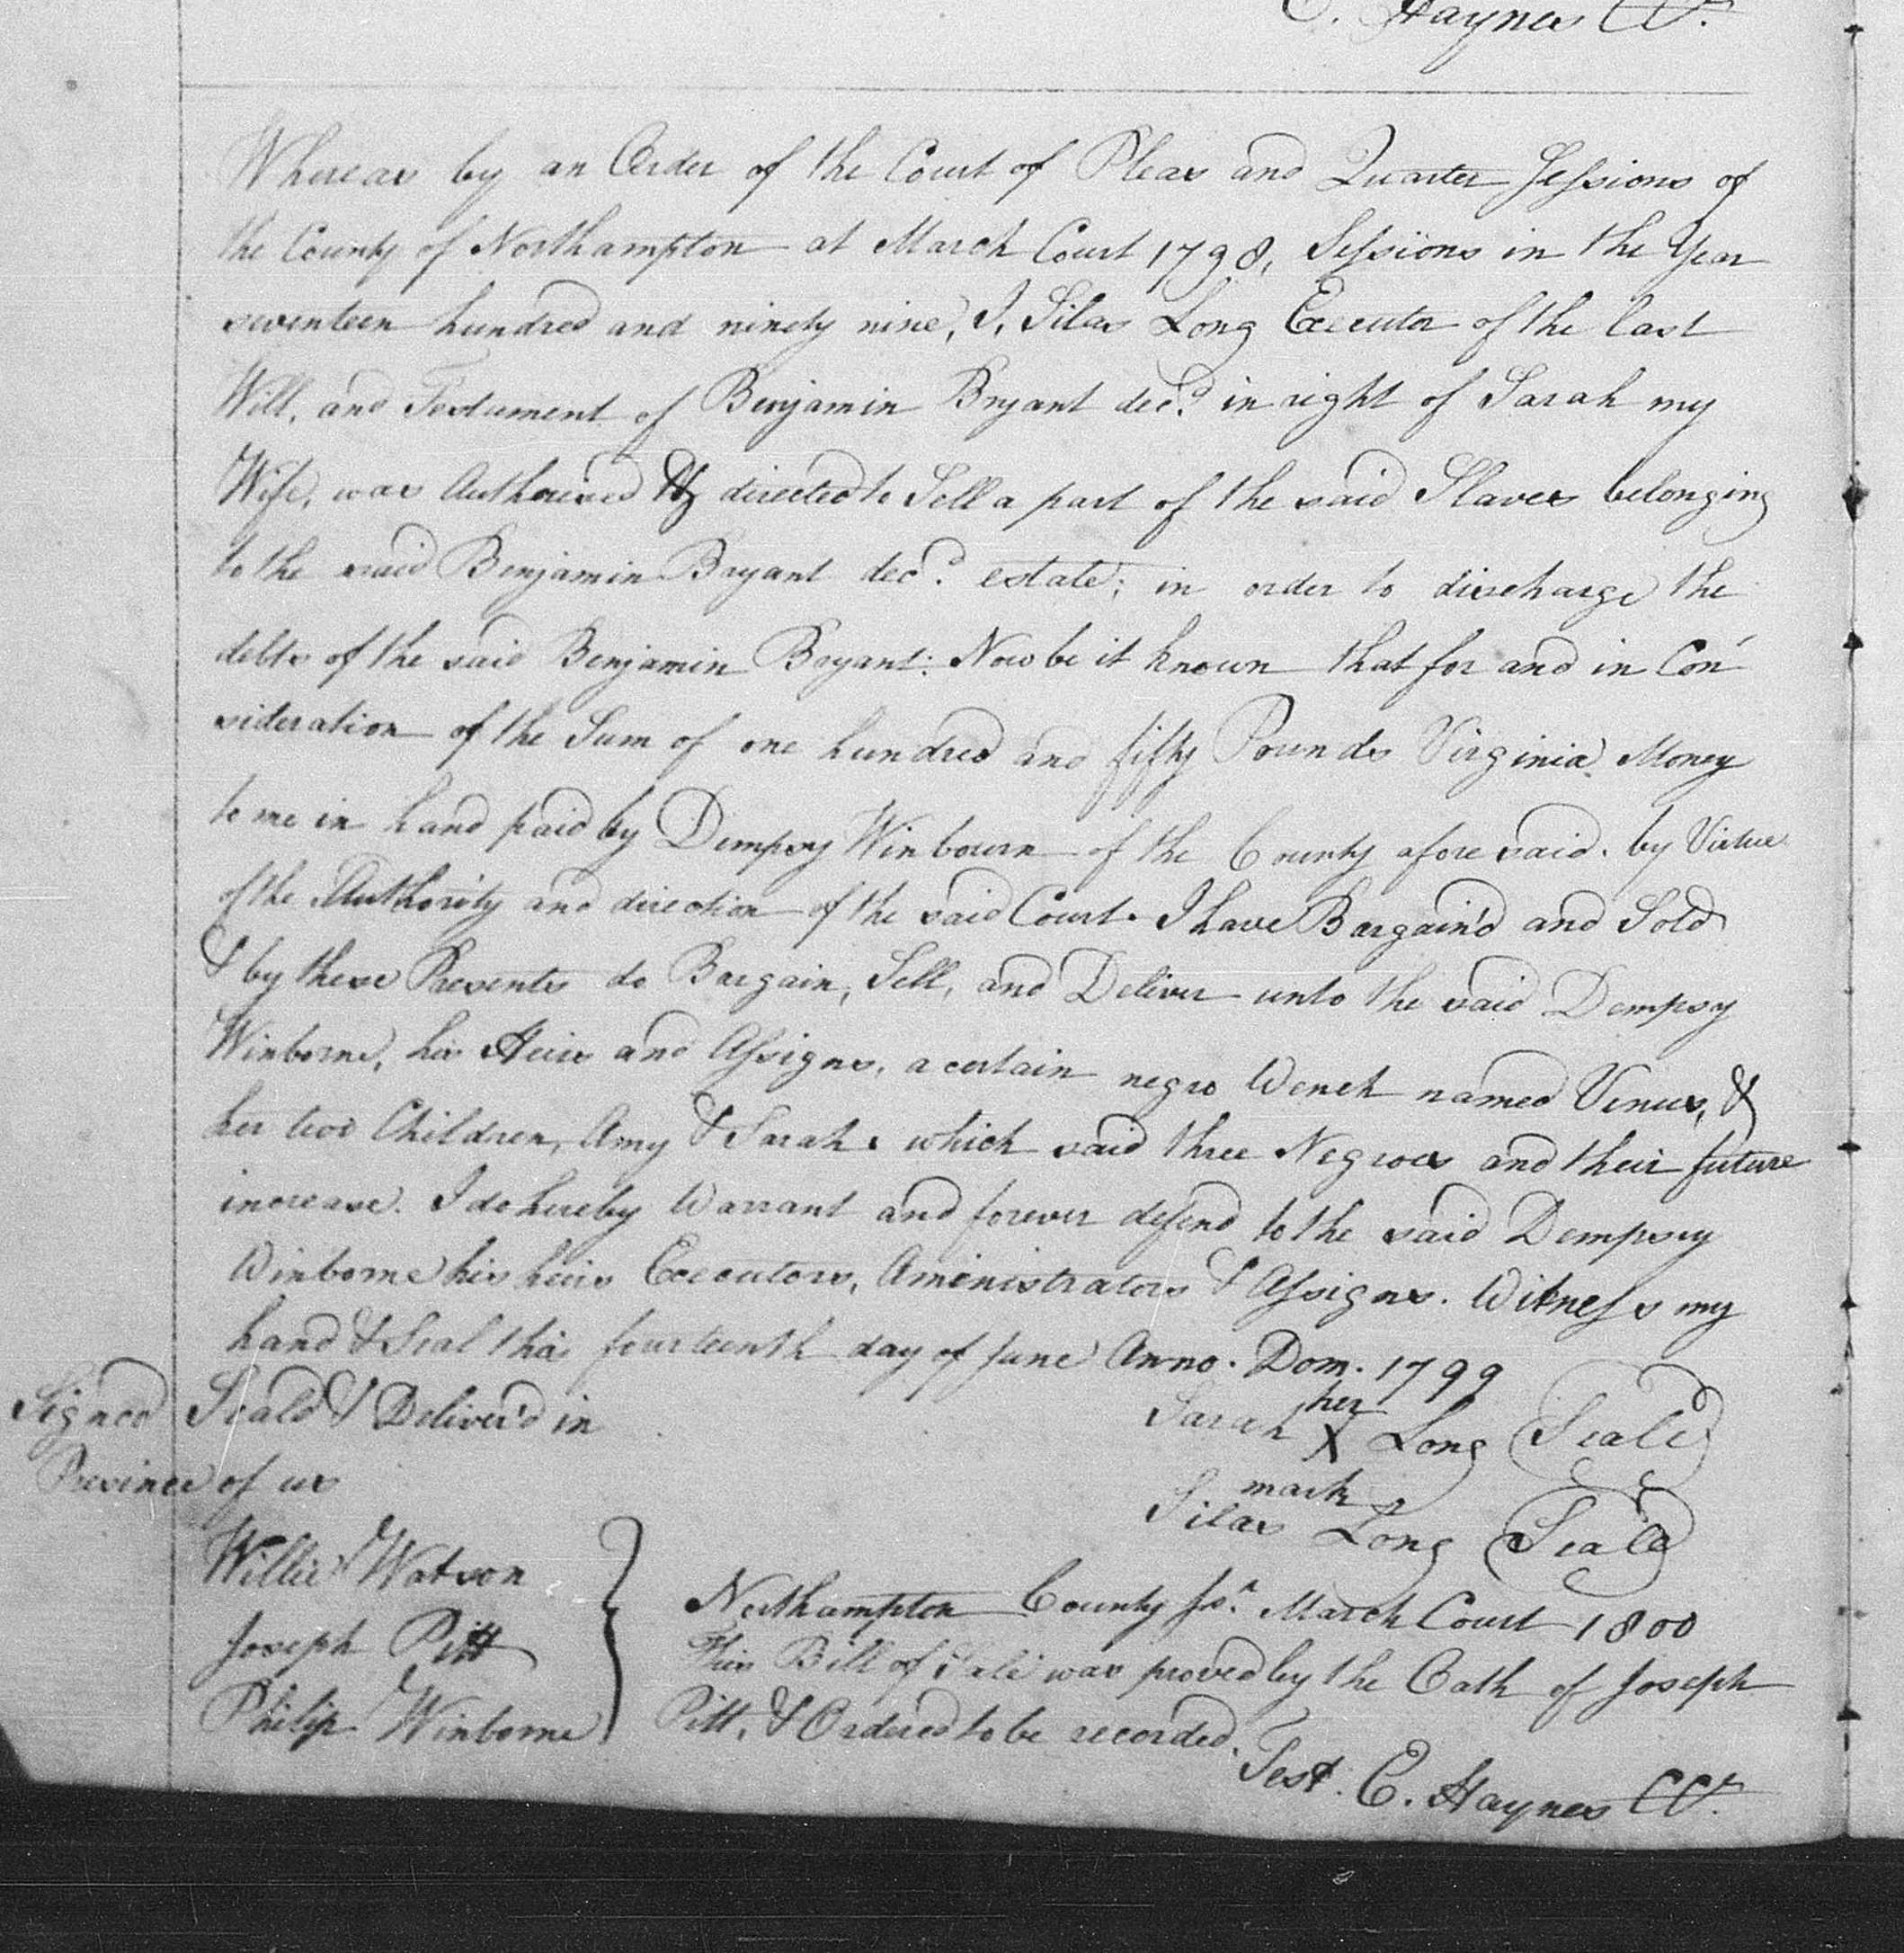 E. Haynes CCt.
Whereas by an Order of the Court of Pleas and Quarter Sessions of
the County of Northampton at March Court 1798, Sessions in the Year
seventeen hundred and ninety nine, I, Silas Long Executor of the last
Will, and Testument of Benjamin Bryant decd. in right of Sarah my
Wife, was Authorised & directed to Sell a part of the said Slaves belonging
to the said Benjamin Bryant decd. estate; in order to discharge the
debts of the said Benjamin Bryant: Now be it known that for and in Con
sideration of the Sum of one hundred and fifty Pounds Virginia Money
to me in hand paid by Dempsy Winbourn of the County aforesaid. by Virtue
of the Authority and direction of the said Court. I have Bargain'd and Sold
& by these Presents do Bargain, Sell, and Deliver unto the said Dempsy
Winborne, his Heirs and Assigns, a certain negro Wench named Venus, &
her two Children, Amy & Sarah. which said three Negroes and their future
increase. I do hereby Warrant and forever defend to the said Dempsey
Winborne his heirs Executors, Aministrators & Assigns. Witness my
hand & Seal this fourteenth day of June Anno. Dom. 1799
Signed Seald & Deliver'd in
Presince of us
her
Sarah X Long (Seale)
mark
Silas Long (Seale)
Willie Watson
Joseph Pitt
Philip Winborne
Northampton County Ss. March Court 1800
This Bill of Sale was proved by the Oath of Joseph
Pitt, & Ordered to be recorded.
Test. E. Haynes CCt.